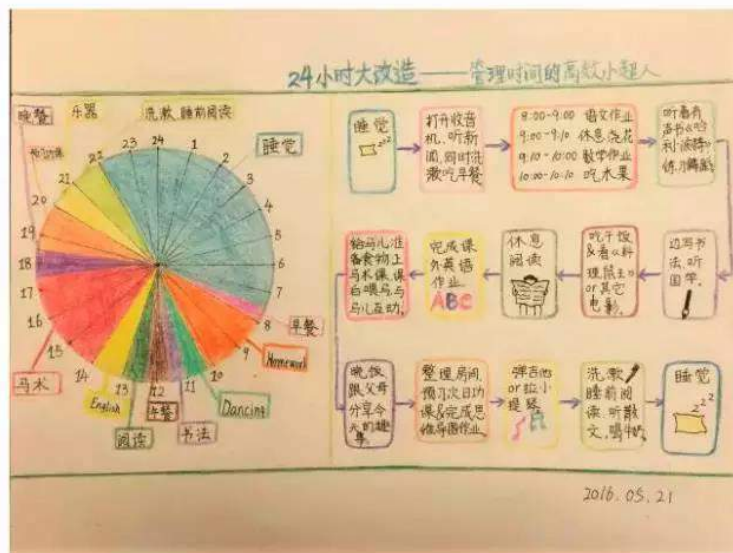 24小时大改造——管理时间的高效小超人
晚餐
乐器
洗漱、睡前阅读
睡觉
24
1
2
3
4
5
6
7
8
9
10
11
12
13
14
15
16
17
18
19
20
21
22
23
早餐
Homework
Dancing
书法
午餐
阅读
English
马术
睡觉
zzz
打开收音
机,听新
闻,同时洗
漱吃早餐
8:00-9:00 语文作业
9:00-9:10 休息浇花
9:10-10:00 数学作业
10:00-10:10 吃水果
听着有
声书
边写书
法,听
国学。
吃午饭
&看《料
理鼠王》
or其它
电影。
休息
阅读
完成课
外英语
作业
ABC
给马儿准
备食物,上
马术课,课
后喂马,与
马儿互动。
晚饭
跟父母
分享今
天的趣
事。
整理房间,
预习次日功
课&完成思
维导图作业。
弹吉他
or拉小
提琴
洗漱
睡前阅
读、听散
文,喝牛奶。
睡觉
zzz
2016.05.21